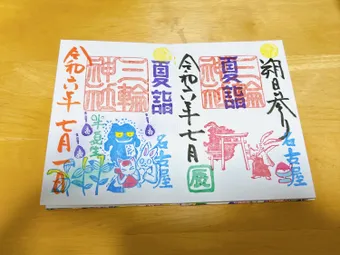 朔日参り
三輪
神社
夏詣
令和六年七月
名古屋
厩
夏詣
三輪
神社
令和六年七月一日
名古屋